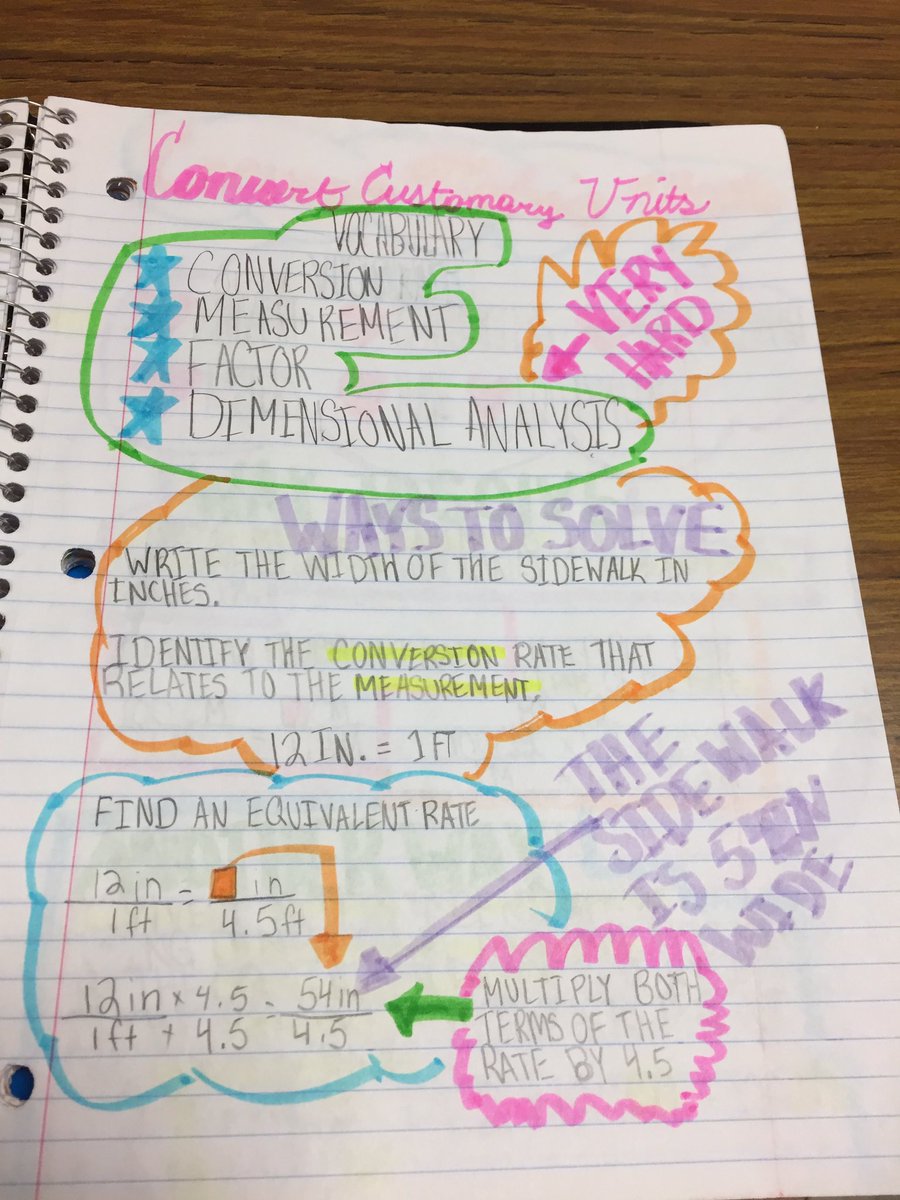 Convert Customary Units
VOCABULARY
CONVERSION
MEASUREMENT
FACTOR
DIMENSIONAL ANALYSIS
VERY
HARD
WAYS TO SOLVE
WRITE THE WIDTH OF THE SIDEWALK IN
INCHES.
IDENTIFY THE CONVERSION RATE THAT
RELATES TO THE MEASUREMENT.
12 IN. = 1 FT
FIND AN EQUIVALENT RATE
12 in = in
1 ft 4.5ft
12 in × 4.5 = 54 in
1 ft + 4.5 4.5
THE
SIDEWALK
IS 54IN
WIDE
MULTIPLY BOTH
TERMS OF THE
RATE BY 4.5